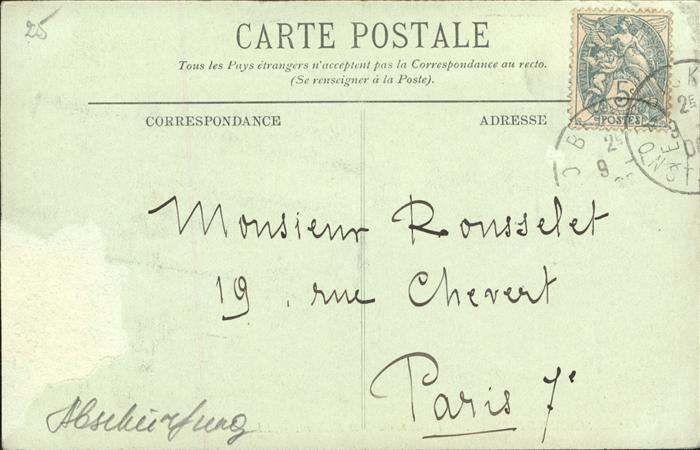 25
CARTE POSTALE
Tous les Pays étrangers n'acceptent pas la Correspondance au recto.
(Se renseigner à la Poste).
CORRESPONDANCE
ADRESSE
5c
POSTES
Monsieur Rousselet
19, rue Chevert
Paris 7e
Abschürfung